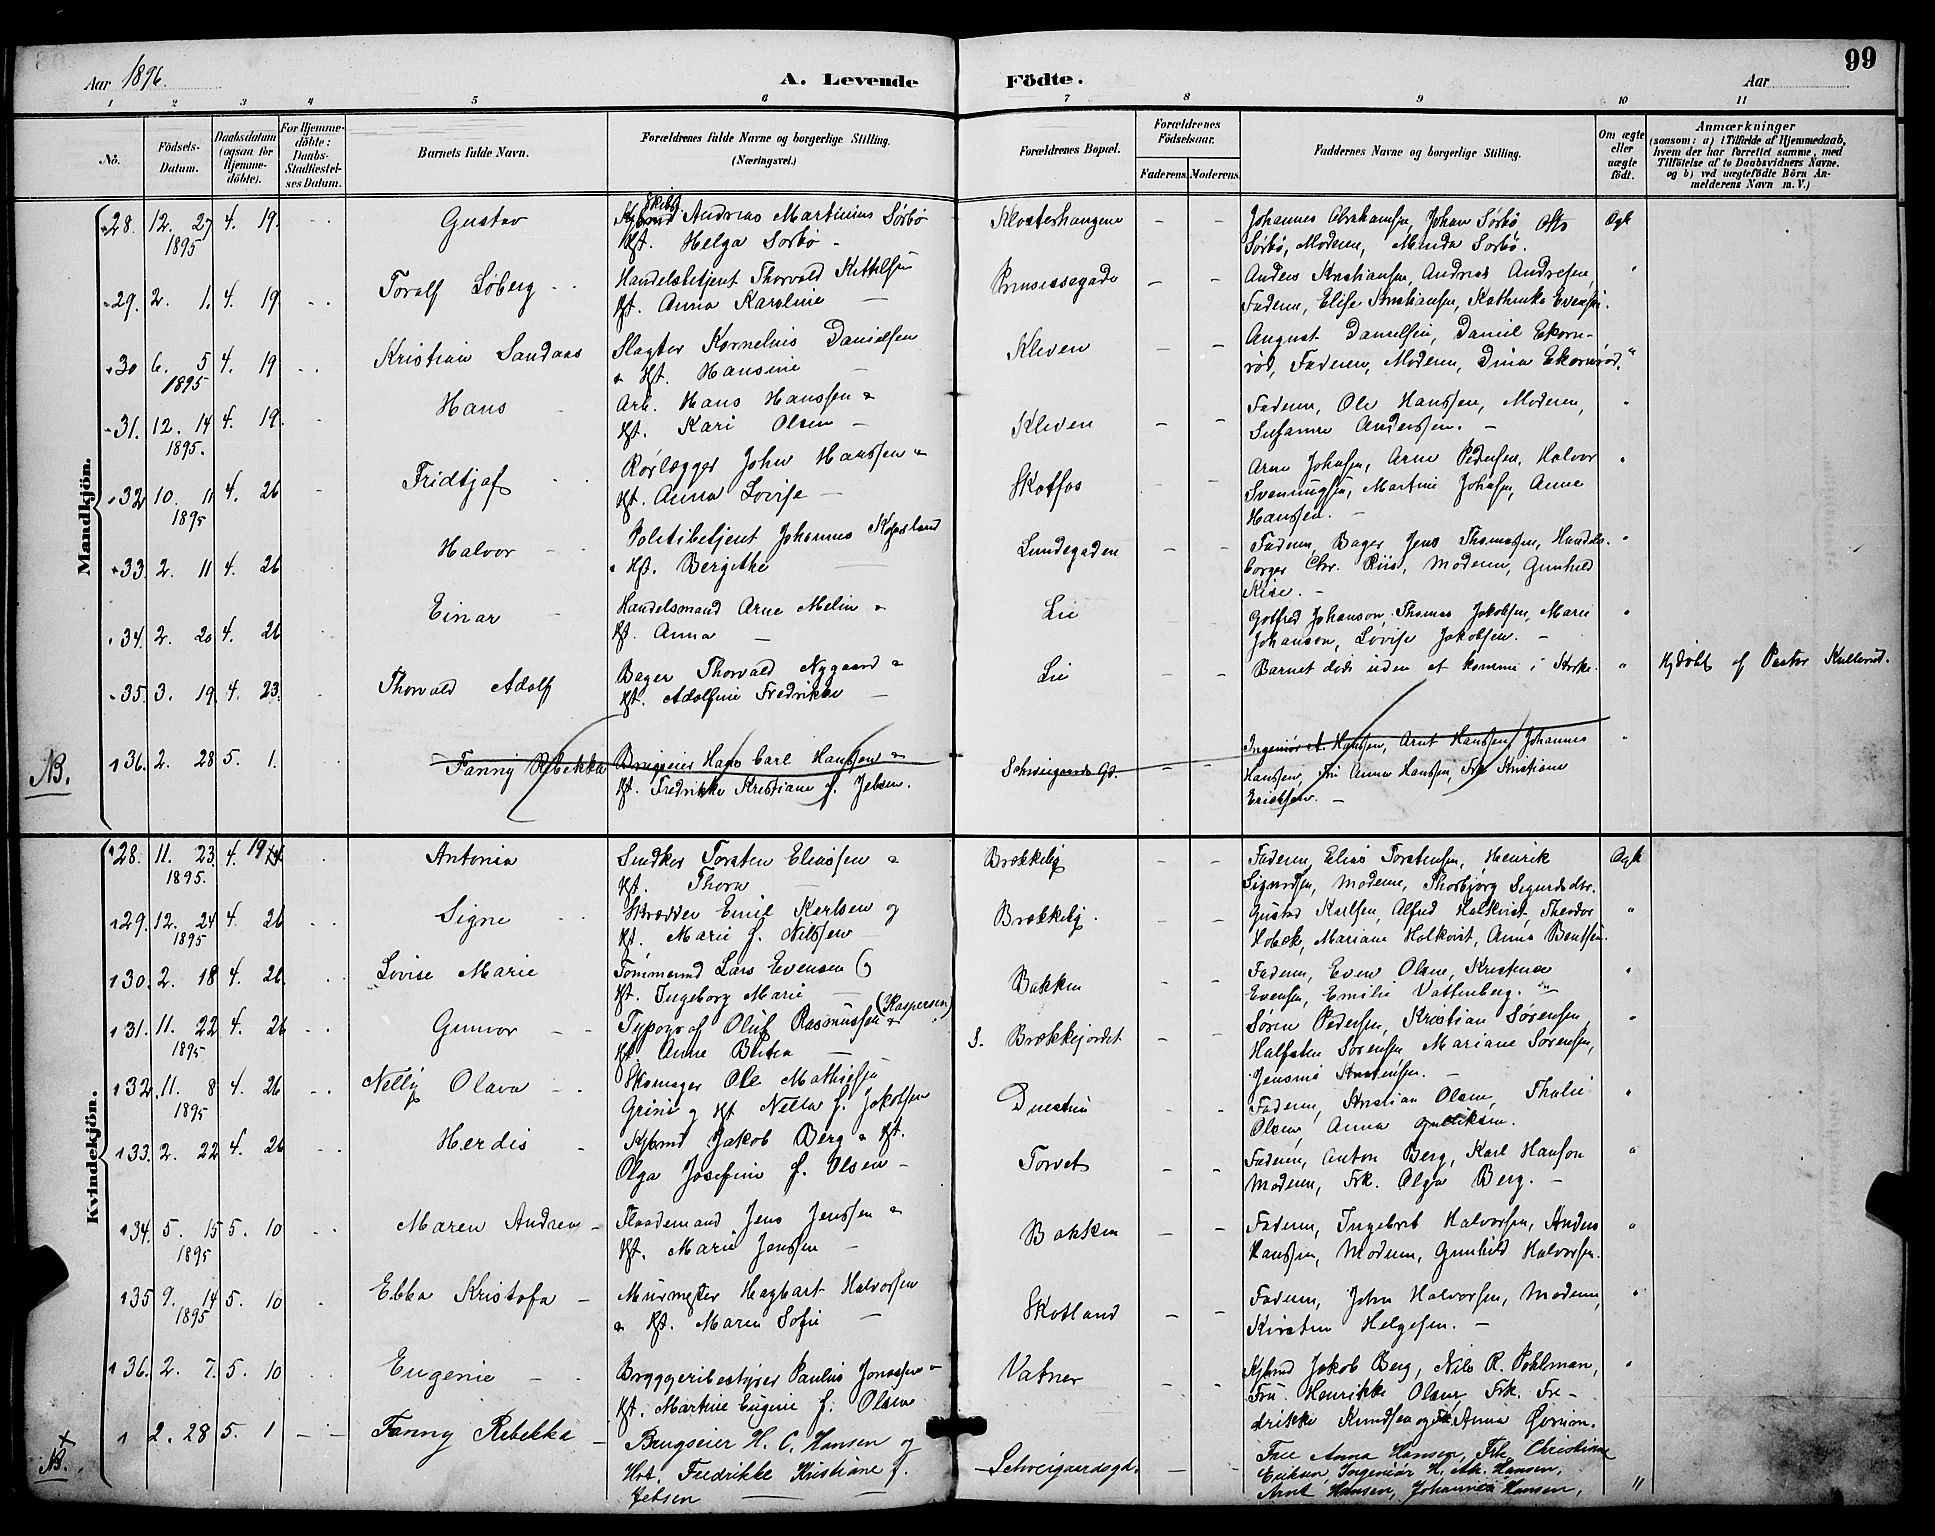 99
Aar 1896.
A. Levende Födte.
Aar
1 2 3 4 5 6 7 8 9 10 11
No.
Födsels-Datum.
Daabsdatum (ogsaa for Hjemme-döbte).
For Hjemme-döbte: Daabs-Stadfæstel-ses Datum.
Barnets fulde Navn.
Forældrenes fulde Navne og borgerlige Stilling. (Næringsvei.)
Forældrenes Bopæl.
Forældrenes Födselsaar.
Faderens. Moderens.
Faddernes Navne og borgerlige Stilling.
Om ægte eller uægte födt.
Anmærkninger
(saasom: a) i Tilfælde af Hjemmedaab, hvem der har forrettet samme, med Tilföielse af to Daabsvidners Navne, og b) ved uægtefödte Börn An-melderens Navn m. V.)
Mandkjön.
28. 12. 27 1895 4. 19. Gustav
Andreas Martinius Sørbø
Kft. Helga Sørbø
Klosterhaugene
Johannes Abrahamsen, Johan Sørbø, Otto
Sørbø, Moderen, Minda Sørbø.
Ægte
29. 2. 1. 4. 19 Toralf Søberg
Handelsbetjent Thorvald Kittilsen
Kft. Anna Karoline
Prinsessegade
Anders Kristiansen, Andreas Andresen,
Faderen, Elise Kristiansen, Kathinka Evensen.
30 6. 5 1895 4. 19 Kristian Sandaas
Slagter Kornelius Danielsen
& Kft. Hansine
Kleven
August Danielsen, Daniel Ekorn-
rød, Faderen, Moderen, Dina Ekornrød.
31. 12. 14 1895. 4. 19. Hans
Arb. Hans Hanssen &
Kft. Kari Olsen
Kleven
Faderen, Ole Hanssen, Moderen,
Susanne Anderssen.
32 10. 11 1895 4. 26 Fridtjof
Rørlægger John Hanssen &
Kft. Anna Lovise
Skotfos
Arne Johnsen, Arne Pedersen, Halvor
Svenningsen, Martine Johnsen, Anne
Hanssen.
33. 2. 11 4. 26 Halvor
Politibetjent Johannes
& Kft. Bergithe
Lundegaden
Faderen, Bager Jens Thomassen, Handels-
borger Chr. Riis, Moderen, Gunhild
Rise.
34. 2. 20 4. 26 Einar
Handelsmand Arne Melin &
Kft. Anna
Lie
Gotfred Johanson, Thomas Jakobsen, Marie
Johanson, Lovise Jakobsen.
35. 3. 19. 4. 23. Thorvald Adolf
Bager Thorvald Nygaard &
Kft. Adolfine Fredrikke
Lie
Barnet døde uden at komme i Kirke.
Hjdøbt af Pastor Kullerud.
NB.
36. 2. 28 5. 1. Fanny Rebekka
Brugseier Hans Carl Hanssen &
Kft. Fredrikke Kristiane f. Jebsen.
Schweigaards Gd.
Ingeniør A. Hanssen, Arnt Hanssen, Johannes
Hanssen, Fru Anna Hanssen, Frk Kristiane
Erichsen.
Kvindekjön.
28. 11. 23. 1895. 4. 19 Antonia
Snedker Torsten Eliassen &
Kft. Thora
Brækkeby
Faderen, Elias Torstensen, Henrik
Sigurdsen, Moderen, Thorbjørg Sigurdsdtr.
Ægte
29. 12. 24 1895 4. 26 Signe
Skrædder Emil Karlsen og
Kft. Marie f. Nilssen
Brækkeby.
Gustav Karlsen, Alfred Holkvist, Theodor
Hobæk, Mariane Holkvist, Anna Bentsen.
30. 2. 18 4. 26. Lovise Marie
Tømmermd Lars Evensen &
Kft. Ingeborg Marie
Bakken
Faderen, Even Olsen, Kristine
Evensen, Emilie Vattenberg.
31. 11. 22 1895 4. 26 Gunvor
Typograf Oluf Rasmussen (Kaspersen) &
Kft Anne Berthea
S. Brækkejordet
Søren Pedersen, Kristian Sørensen,
Halfsten Sørensen Mariane Sørensen,
Jensine Kristensen.
32. 11. 8 1895 4. 26 Nelly Olava
Skomager Ole Mathiesen
Grini og Kft Nella f. Jakobsen
Duestien
Faderen, Kristian Olsen, Thalie
Olsen, Anna Gulliksen.
33. 2. 22 4. 26 Herdis
Kjbmd Jakob Berg & Kft.
Olga Josefine f. Olsen
Torvet
Faderen, Anton Berg, Karl Hanson
Moderen, Frk. Olga Berg.
34. 5. 15 1895 5. 10 Maren Andrea
Flaademand Jens Jenssen &
Kft. Marie Jenssen
Bakken
Faderen, Ingebret Halvorsen, Anders
Hanssen, Moderen, Gunhild Halvorsen.
35 9. 14 1895 5. 10 Ebba Kristofa
Murmester Hagbart Halvorsen
& Kft. Maren Sofie
Skotland
Faderen, John Halvorsen, Moderen,
Kirsten Helgesen.
36. 2. 7. 5. 10 Eugenie
Bryggeribestyrer Paulus Jonassen &
Kft. Martine Eugenie f. Olsen
Vatner
Kjbmd Jakob Berg, Nils R. Pohlman,
Fru Henrikke Olsen, Frk. Fre-
drikke Knudsen og Frk Anna
NB.
2. 28 5. 1 Fanny Rebekka
Brugseier H. C. Hansen og
Hst. Fredrikke Kristiane f.
Jebsen
Schweigaardsgd.
Frue Anna Hansen, Frk. Christiane
Eriksen, Ingeniør H. Ak. Hansen,
Arnt Hansen, Johannes Hansen,